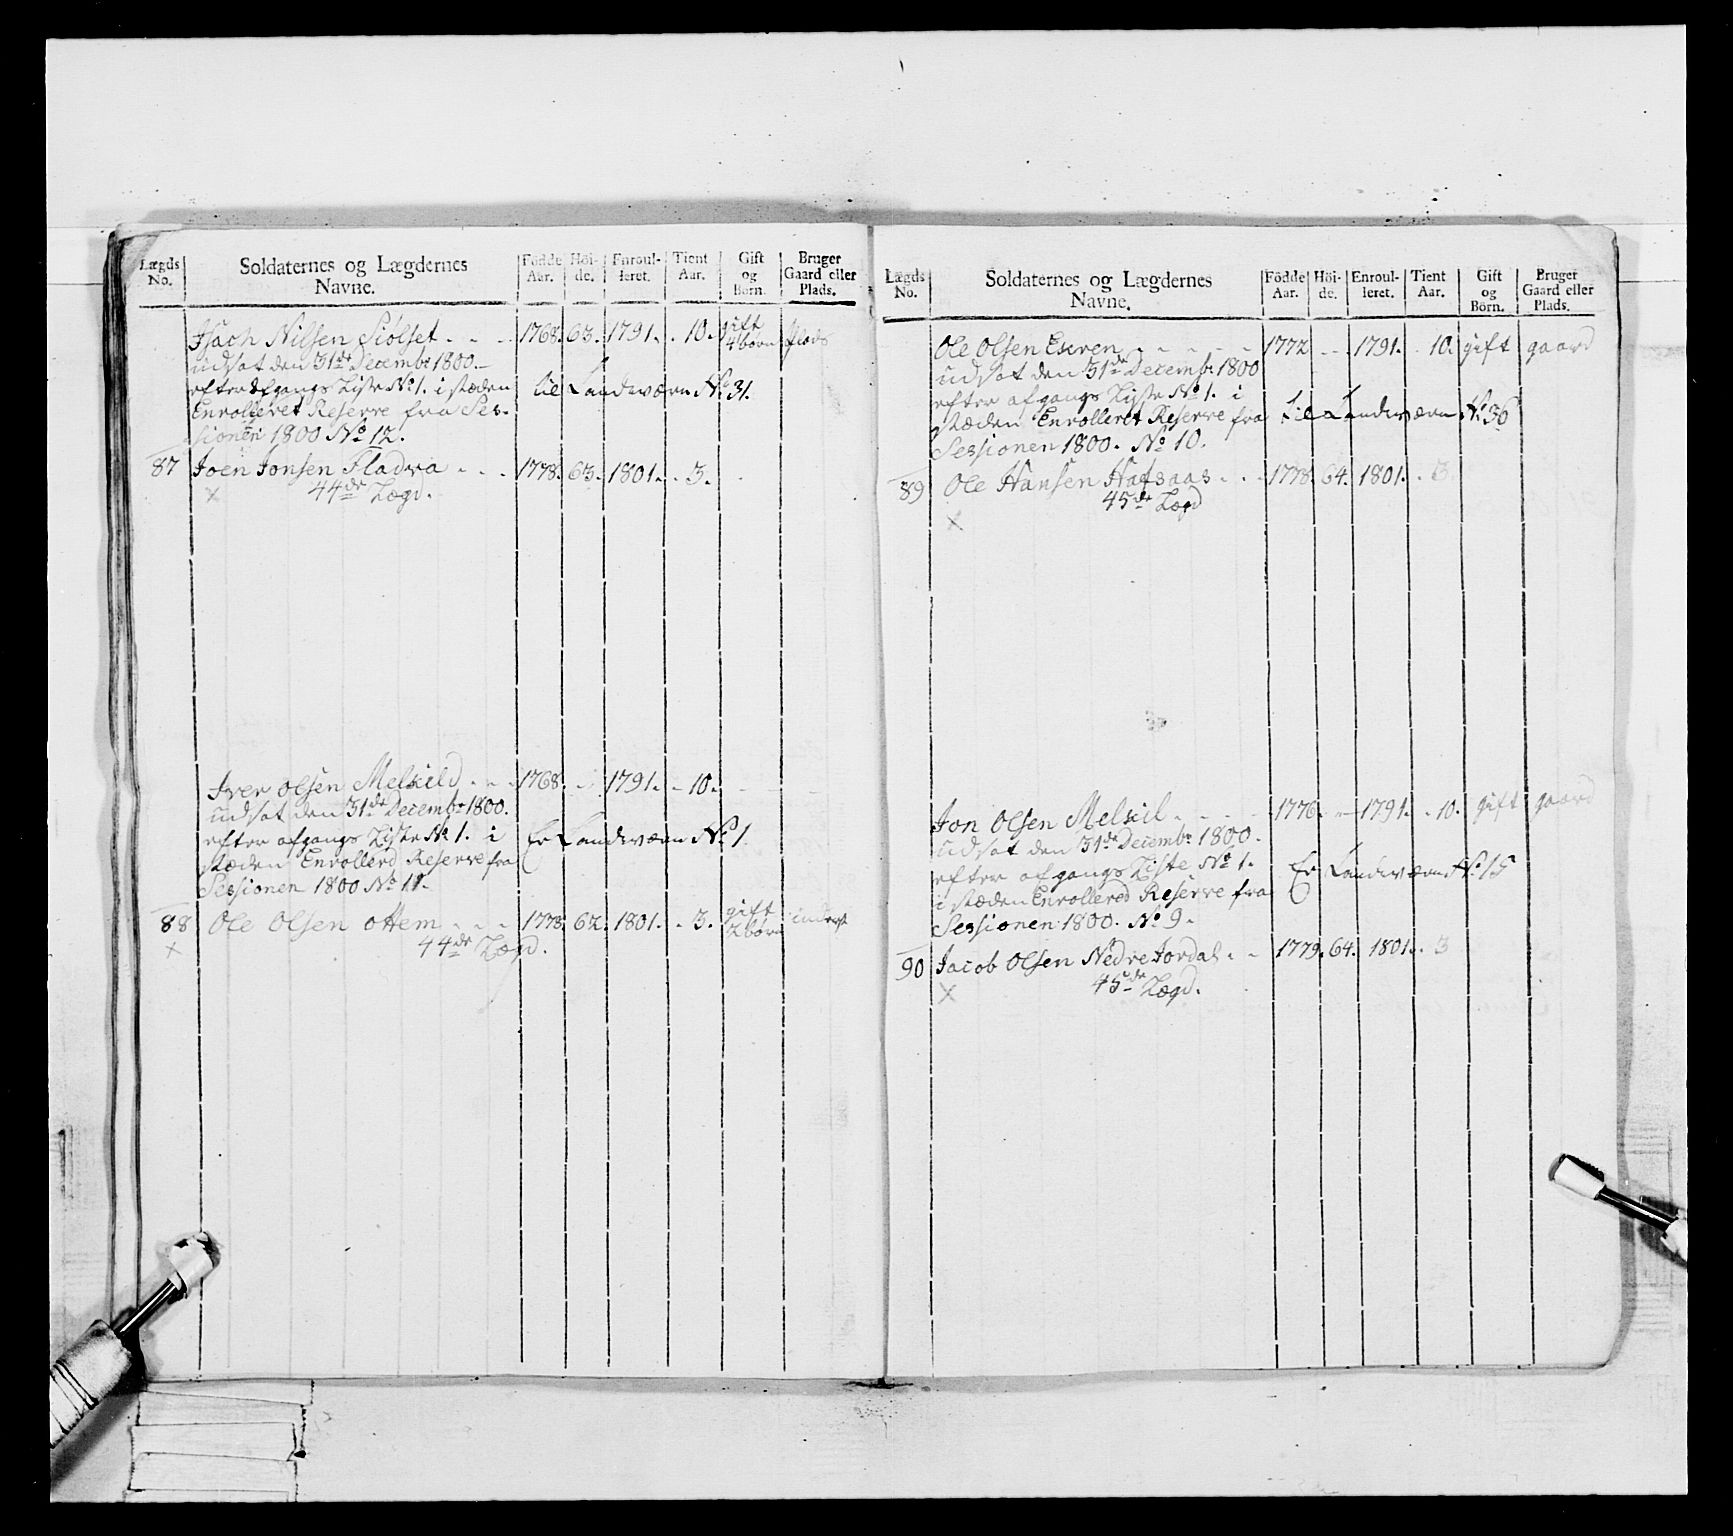 Lægds No. Soldaternes og Lægdernes Navne. Födde Aar. Höi-de. Enroul-leret. Tient Aar. Gift og Börn. Bruger Gaard eller Plads.
Isach Nilsen Siölset - - 1768. 63. 1791. - 10. gift 4 börn Plads
udsat den 31de Decembr 1800.
efter afgangs Liste No 1. i stæden til Landværn No 31.
Enrolleret Reserve fra Ses-
sionen 1800 No 12.
87 Joen Jonsen Fladva - - - 1778. 63. 1801. - 3.
× 44de Lægd.
Iver Olsen Melkild - - 1768. - 1791. - 10.
udsat den 31de Decembr 1800.
efter afgangs Liste No 1. i Er Landværn No 1
stæden Enrollerd Reserve fra
Sessionen 1800 No 11.
88 Ole Olsen Ottem - - - 1778. 62. 1801. - 3. gift 2 börn inderst
× 44de Lægd.
Lægds No. Soldaternes og Lægdernes Navne. Födde Aar. Höi-de. Enroul-leret. Tient Aar. Gift og Börn. Bruger Gaard eller Plads.
Ole Olsen - - - - - 1772 - - 1791. - 10. gift gaard
udsat den 31de Decembr 1800
efter afgangs Liste No 1. i
stæden Enrolleret Reserve fra til Landværn No 36
Sessionen 1800. No 10.
89 Ole Hansen Hafsaas - - - 1778. 64. 1801. - 3
× 45de Lægd
Jon Olsen Melkil - - - - 1776. - 1791. - 10. gift gaard
udsat den 31de Decembr 1800.
efter afgangs Liste No 1. Er Landværn No 15
i stæden Enrollered Reserve fra
Sessionen 1800. No 9.
90 Jacob Olsen Nedre Jordal - - 1779. 64. 1801. - 3
× 45de Lægd.